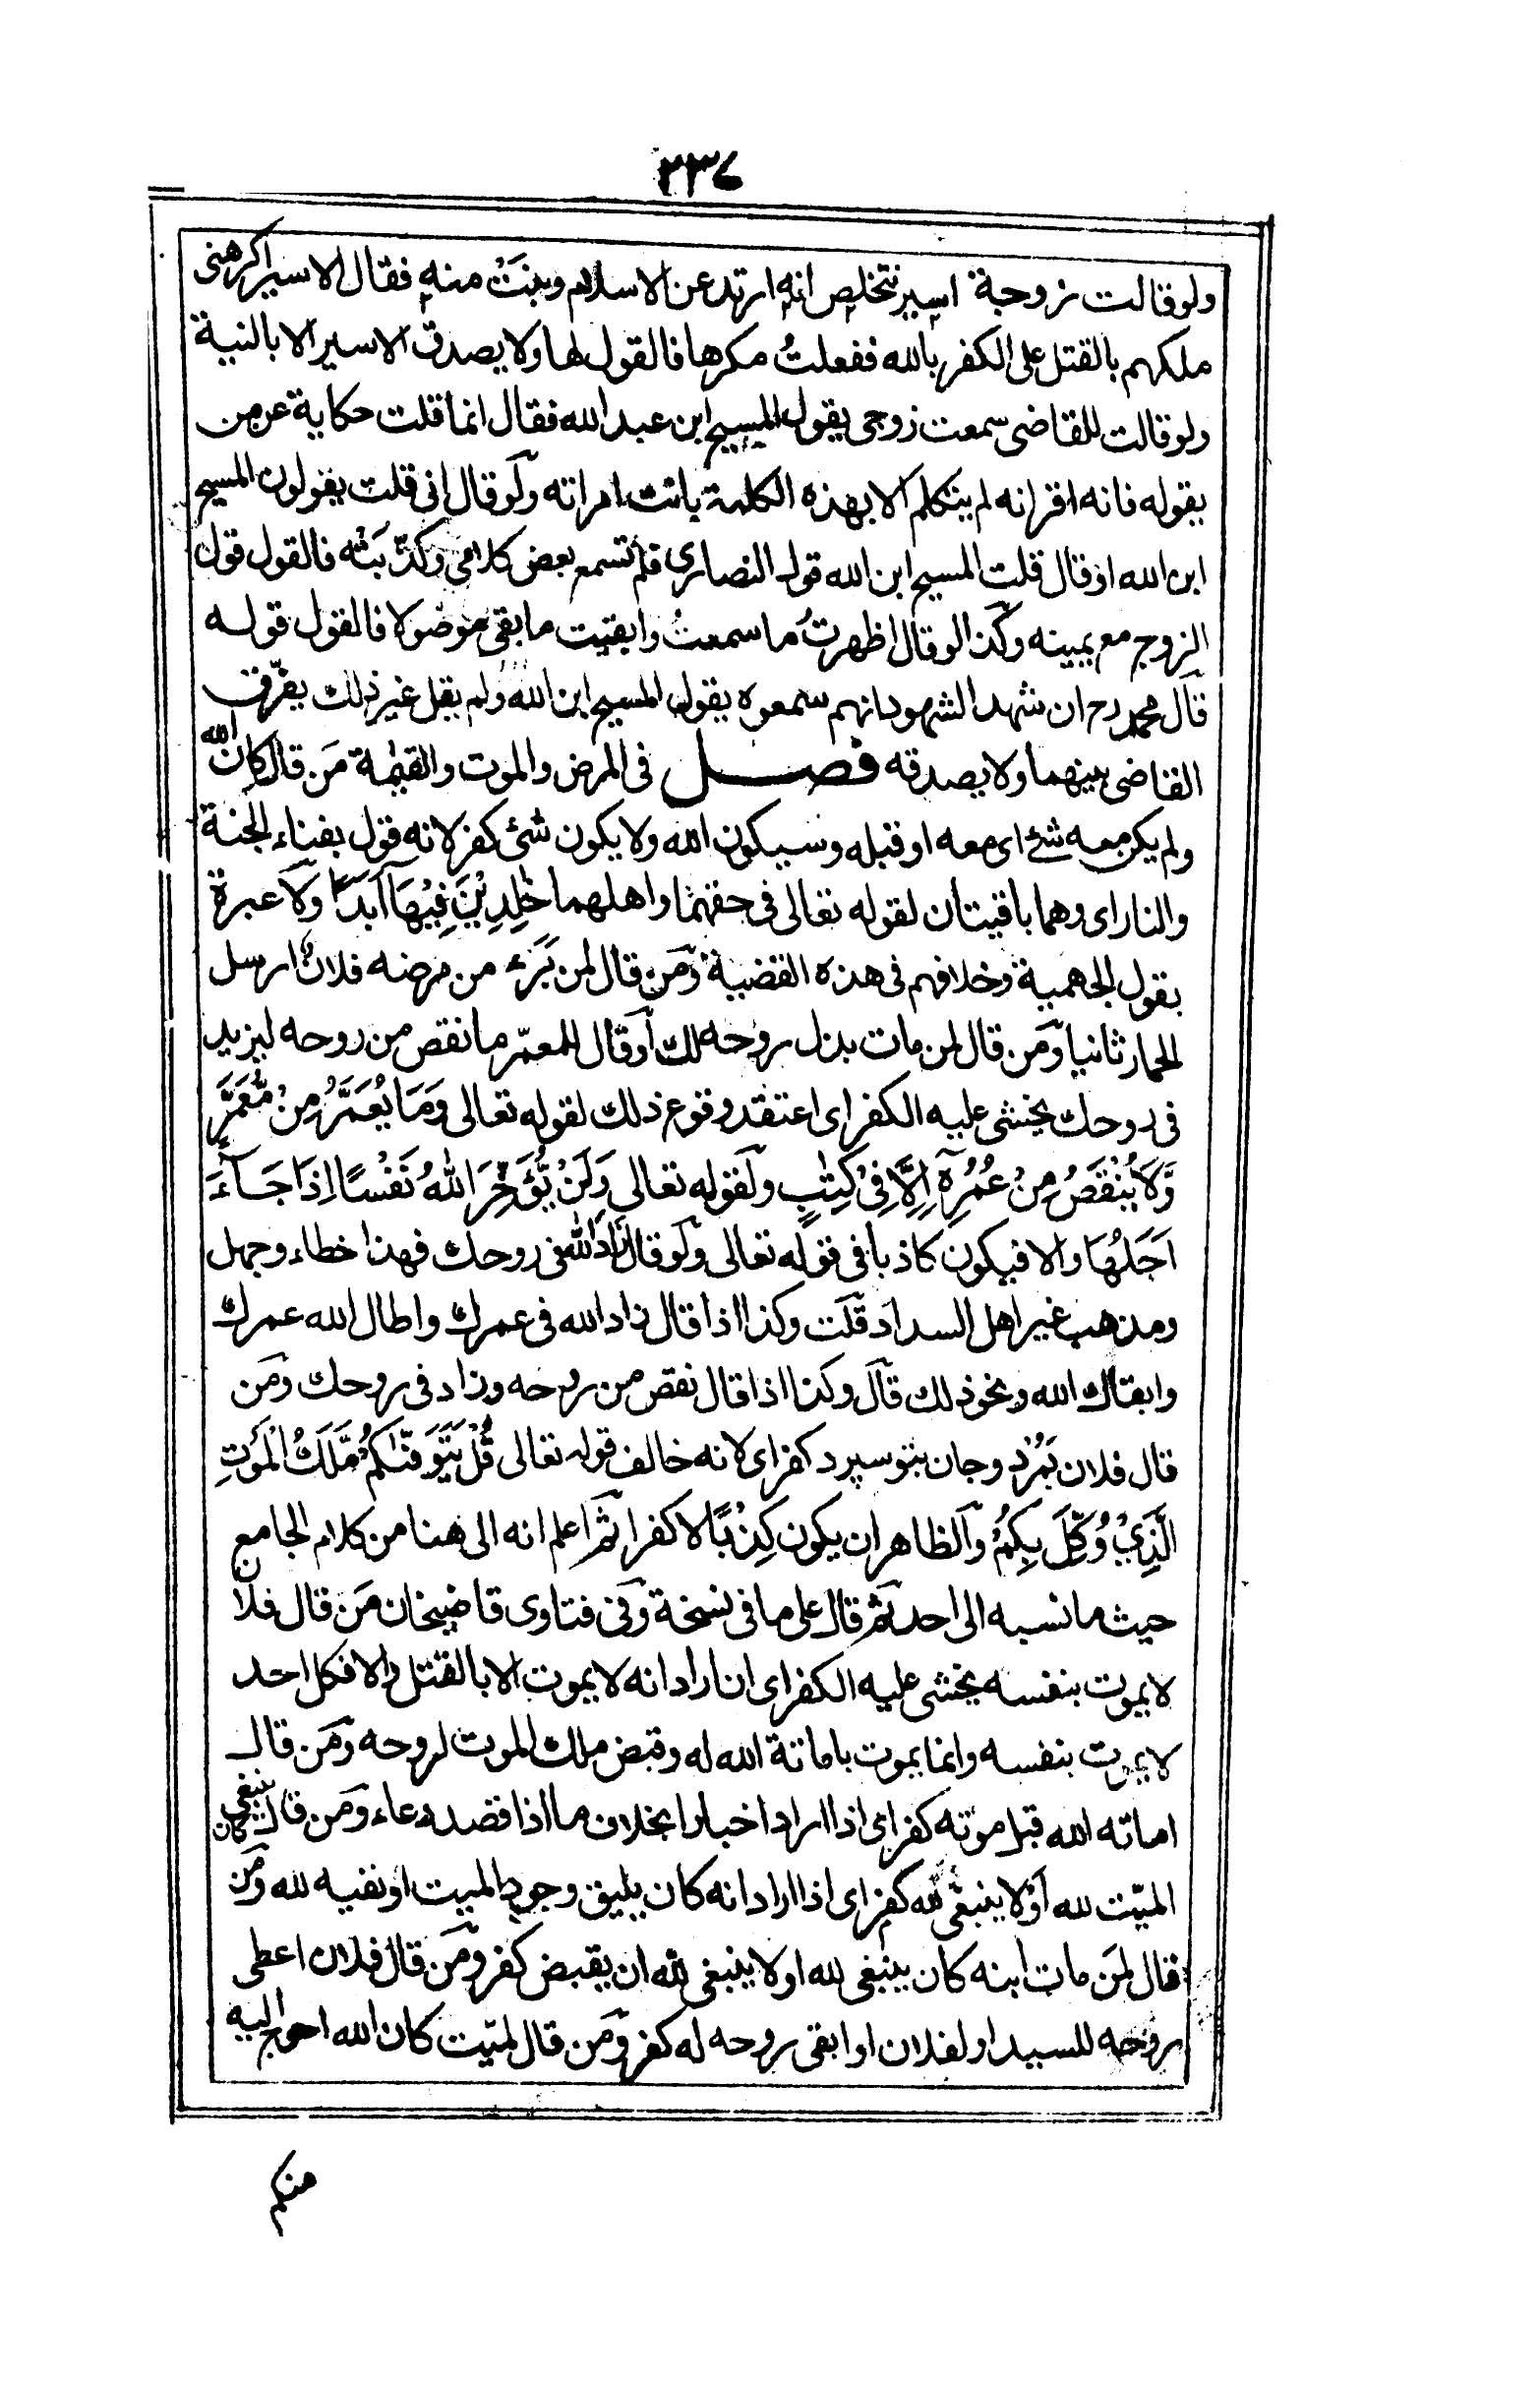 ٢٣٤
ولو قالت زوجة اسير تتخلص انه ارتد عن الاسلام وبنت منه فقال الاسير اكرهنى
ملكهم بالقتل على الكفر بالله ففعلتُ مكرها فالقول لها ولا يصدق الاسير الا بالنية
ولو قالت للقاضى سمعت زوجى يقول المسيح ابن عبد الله فقال انما قلت حكاية عن من
يقوله فانه اقر انه لم يتكلم الا بهذه الكلمة بانت امراته ولو قال انى قلت يقولون المسيح
ابن الله او قال قلت المسيح ابن الله قول النصارى فلم تسمع بعض كلامى وكذّبته فالقول قول
الزوج مع يمينه وكذا لو قال اظهرتُ ما سمعتْ وابقيت ما بقى موصولا فالقول قوله
قال محمد رح ان شهد الشهود انهم سمعوه يقول المسيح ابن الله ولم يقل غير ذلك يفرّق
القاضى بينهما ولا يصدقه فصل فى المرض والموت والقيٰمة مَن قال كان الله
ولم يكن معه شئ اى معه او قبله وسيكون الله ولا يكون شئ كفر لانه قول بفناء الجنة
والنار اى وهما باقيتان لقوله تعالى فى حقهما واهلهما خٰلِدِيْنَ فِيْهَآ اَبَدًا ولا عبرة
بقول الجهمية وخلافهم فى هذه القضية ومَن قال لمن بَرَء من مرضه فلان ارسل
الحمار ثانيا ومَن قال لمن مات بذل روحه لك أو قال للمعمّر ما نقص من روحه ليزيد
فى روحك يخشى عليه الكفر اى اعتقد وقوع ذلك لقوله تعالى وَمَا يُعَمَّرُ مِنْ مُّعَمَّرٍ
وَّلَا يُنْقَصُ مِنْ عُمُرِهٖٓ اِلَّا فِىْ كِتٰبٍ ولقوله تعالى وَلَنْ يُّؤَخِّرَ اللهُ نَفْسًا اِذَا جَآءَ
اَجَلُهَا والا فيكون كاذبا فى قوله تعالى ولو قال زاد الله فى روحك فهذا خطاء وجهل
ومذهب غير اهل السداد قلت وكذا اذا قال زاد الله فى عمرك واطال الله عمرك
وابقاك الله ونحو ذلك قال وكذا اذا قال نقص من روحه وزاد فى روحك ومَن
قال فلان بَمُرْد وجان بتو سپرد كفر اى لانه خالف قوله تعالى قُلْ يَتَوَفّٰىكُمْ مَّلَكُ الْمَوْتِ
الَّذِيْ وُكِّلَ بِكُمْ والظاهر ان يكون كِذْبًا لا كفرا ثم اعلم انه الى هنا من كلام الجامع
حيث ما نسبه الى احد ثم قال على ما فى نسخة وفى فتاوى قاضيخان مَن قال فلان
لا يموت بنفسه يخشى عليه الكفر اى ان اراد انه لا يموت الا بالقتل والا فكل احد
لا يموت بنفسه وانما يموت باماتة الله له وقبض ملك الموت لروحه ومَن قال
اماته الله قبل موته كفر اى اذا اراد اخبارا بخلاف ما اذا قصد دعاء ومَن قال كان ينبغى
الميّت لله أو لا ينبغى لله كفر اى اذا اراد انه كان يليق وجود الميت او نفيه لله ومَن
قال لمَن مات ابنه كان ينبغى لله او لا ينبغى لله ان يقبض كفر ومَن قال فلان اعطى
روحه للسيد او لفلان او ابقى روحه له كفر ومَن قال لميّت كان الله احوج اليه
منكم